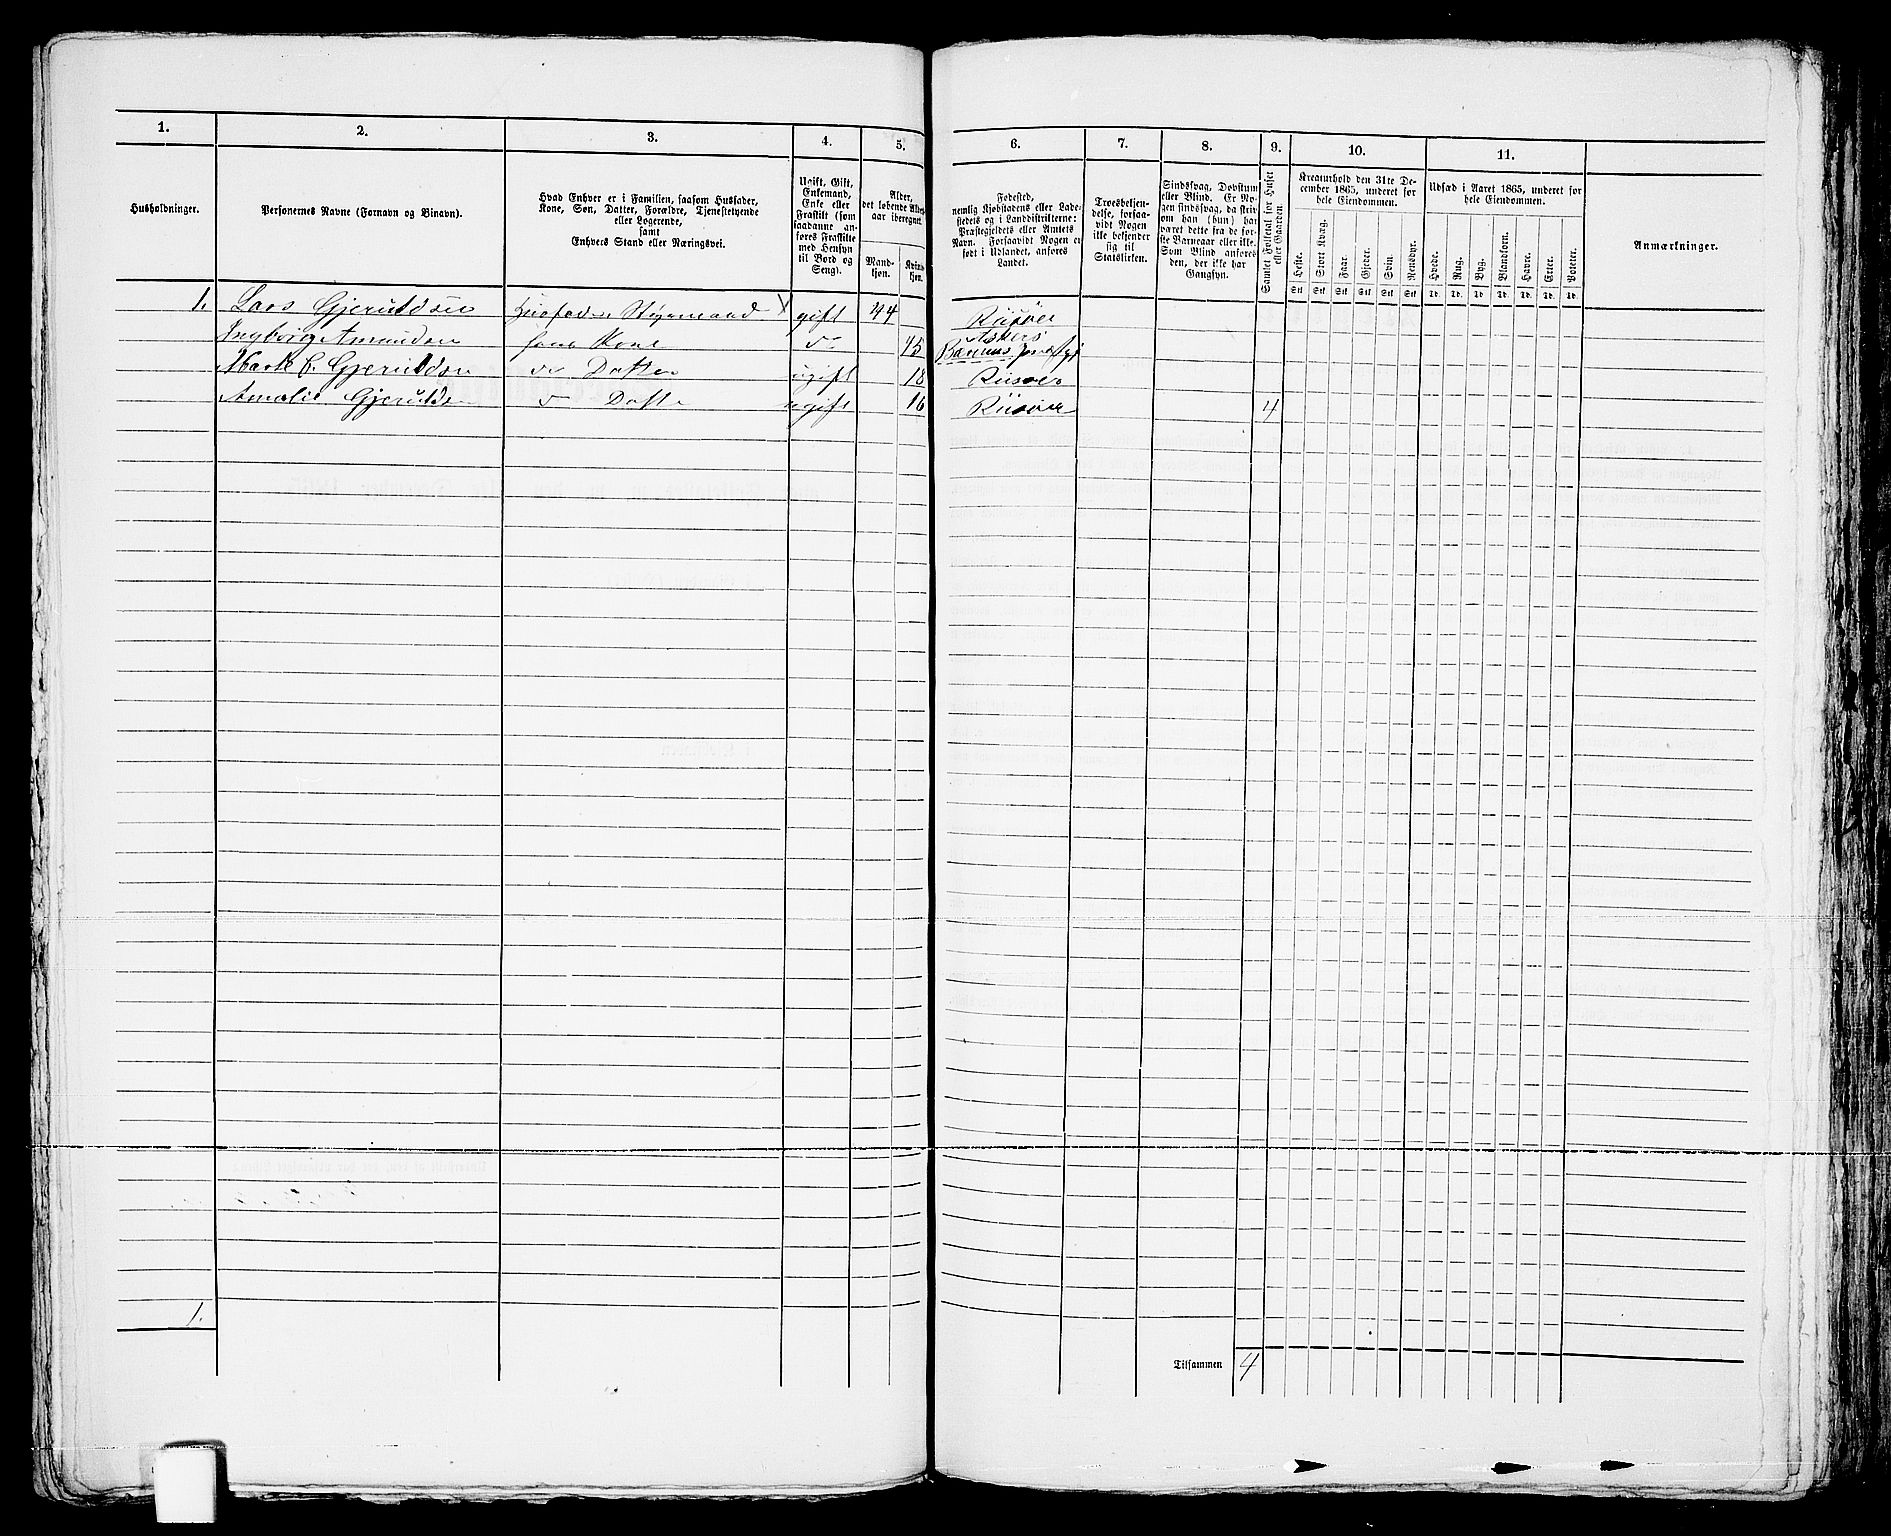 1. 2. 3. 4. 5. 6. 7. 8. 9. 10. 11.
Husholdninger.
Personernes Navne (Fornavn og Binavn).
Hvad Enhver er i Familien, saasom Husfader,
Kone, Søn, Datter, Forældre, Tjenestetyende
eller Logerende,
samt
Enhvers Stand eller Næringsvei.
Ugift, Gift,
Enkemand,
Enke eller
Fraskilt (som
saadanne an-
føres Fraskilte
med Hensyn
til Bord og
Seng).
Alder,
det løbende Alders-
aar iberegnet.
Mand-
kjøn.
Kvinde-
kjøn.
Fødested,
nemlig Kjøbstadens eller Lade-
stedets og i Landdistrikterne:
Præstegjeldets eller Amtets
Navn. Forsaavidt Nogen er
født i Udlandet, anføres
Landet.
Troesbekjen-
delse, forsaa-
vidt Nogen
ikke bekjender
sig til
Statskirken.
Sindssvag, Døvstum
eller Blind. Er No-
gen sindssvag, da skriv
om han (hun) har
været dette fra de før-
ste Barneaar eller ikke.
Som Blind anføres
den, der ikke har
Gangsyn.
Samlet Folketal for Huset
eller Gaarden.
Kreaturhold den 31te De-
cember 1865, underet for
hele Eiendommen.
Heste. Stort Kvæg. Faar. Gjeder. Svin. Rensdyr.
Stk Stk Stk Stk Stk Stk
Udsæd i Aaret 1865, underet for
hele Eiendommen.
Hvede. Rug. Byg. Blandkorn. Havre. Erter. Poteter.
Td. Td. Td. Td. Td. Td. Td.
Anmærkninger.
1. Lars Gjeruldsen Husfader Styrmand X gift 44 Riisøer
Ingborg Amundsen hans Kone do 45 Askers Bærums Præstgj
Marte C. Gjeruldsen do Datter ugift 18 Riisøer
Amalie Gjeruldsen do Datter ugift 16 Riisøer 4
1.
Tilsammen 4